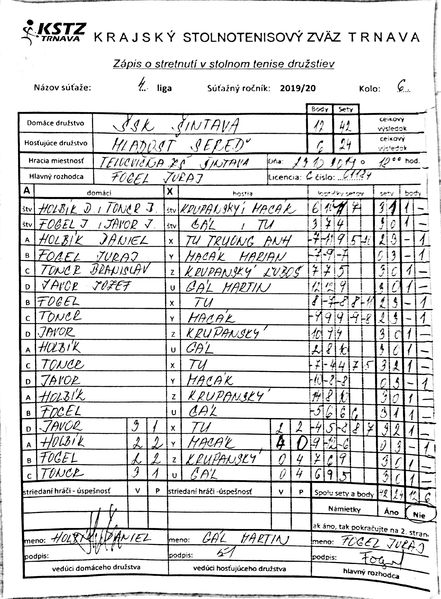 KSTZ TRNAVA KRAJSKÝ STOLNOTENISOVÝ ZVÄZ TRNAVA
Zápis o stretnutí v stolnom tenise družstiev
Názov súťaže: 4. liga Súťažný ročník: 2019/20 Kolo: 6
Body Sety
Domáce družstvo ŠSK ŠINTAVA 12 42 celkový výsledok
Hosťujúce družstvo MLADOSŤ SEREĎ 6 24 celkový výsledok
Hracia miestnosť TELOCVIČŇA ZŠ ŠINTAVA Dňa: o hod.
Hlavný rozhodca FOGEL JURAJ Licencia C číslo:
A domáci X hostia sety body
štv HOLBÍK D TONCR J štv KRUPANSKÝ MACÁK 3 1 1 -
štv FOGEL J JAVOR J štv GÁL TU 3 7 4 3 0 1 -
A HOLBÍK DANIEL X TU TRUONG ANH 2 3 - 1
B FOGEL JURAJ Y MACÁK MARIAN -7 -9 -7 0 3 - 1
C TONCR BRANISLAV Z KRUPANSKÝ ĽUBOŠ 7 7 5 3 0 1 -
D JAVOR JOZEF U GÁL MARTIN 3 0 1 -
B FOGEL X TU 8 -7 -8 8 -11 2 3 - 1
C TONCR Y MACÁK 2 3 - 1
D JAVOR Z KRUPANSKÝ 3 0 1 -
A HOLBÍK U GÁL 3 0 1 -
C TONCR X TU -7 -4 4 7 5 3 2 1 -
D JAVOR Y MACÁK -10 -2 -8 0 3 - 1
A HOLBÍK Z KRUPANSKÝ 3 0 1 -
B FOGEL U GÁL -5 6 6 6 3 1 1 -
D JAVOR 3 1 X TU 2 2 -4 5 -8 8 7 3 2 1 -
A HOLBÍK 2 2 Y MACÁK 4 0 -9 -2 -6 0 3 - 1
B FOGEL 2 2 Z KRUPANSKÝ 0 4 7 6 9 3 0 1 -
C TONCR 3 1 U GÁL 0 4 6 9 5 3 0 1 -
striedaní hráči - úspešnosť V P striedaní hráči - úspešnosť V P Spolu sety a body 42 24 12 6
Námietky Áno Nie
ak áno, tak pokračujte na 2. strane
meno: HOLBÍK DANIEL meno: GÁL MARTIN meno: FOGEL JURAJ
podpis: podpis: podpis:
vedúci domáceho družstva vedúci hosťujúceho družstva hlavný rozhodca